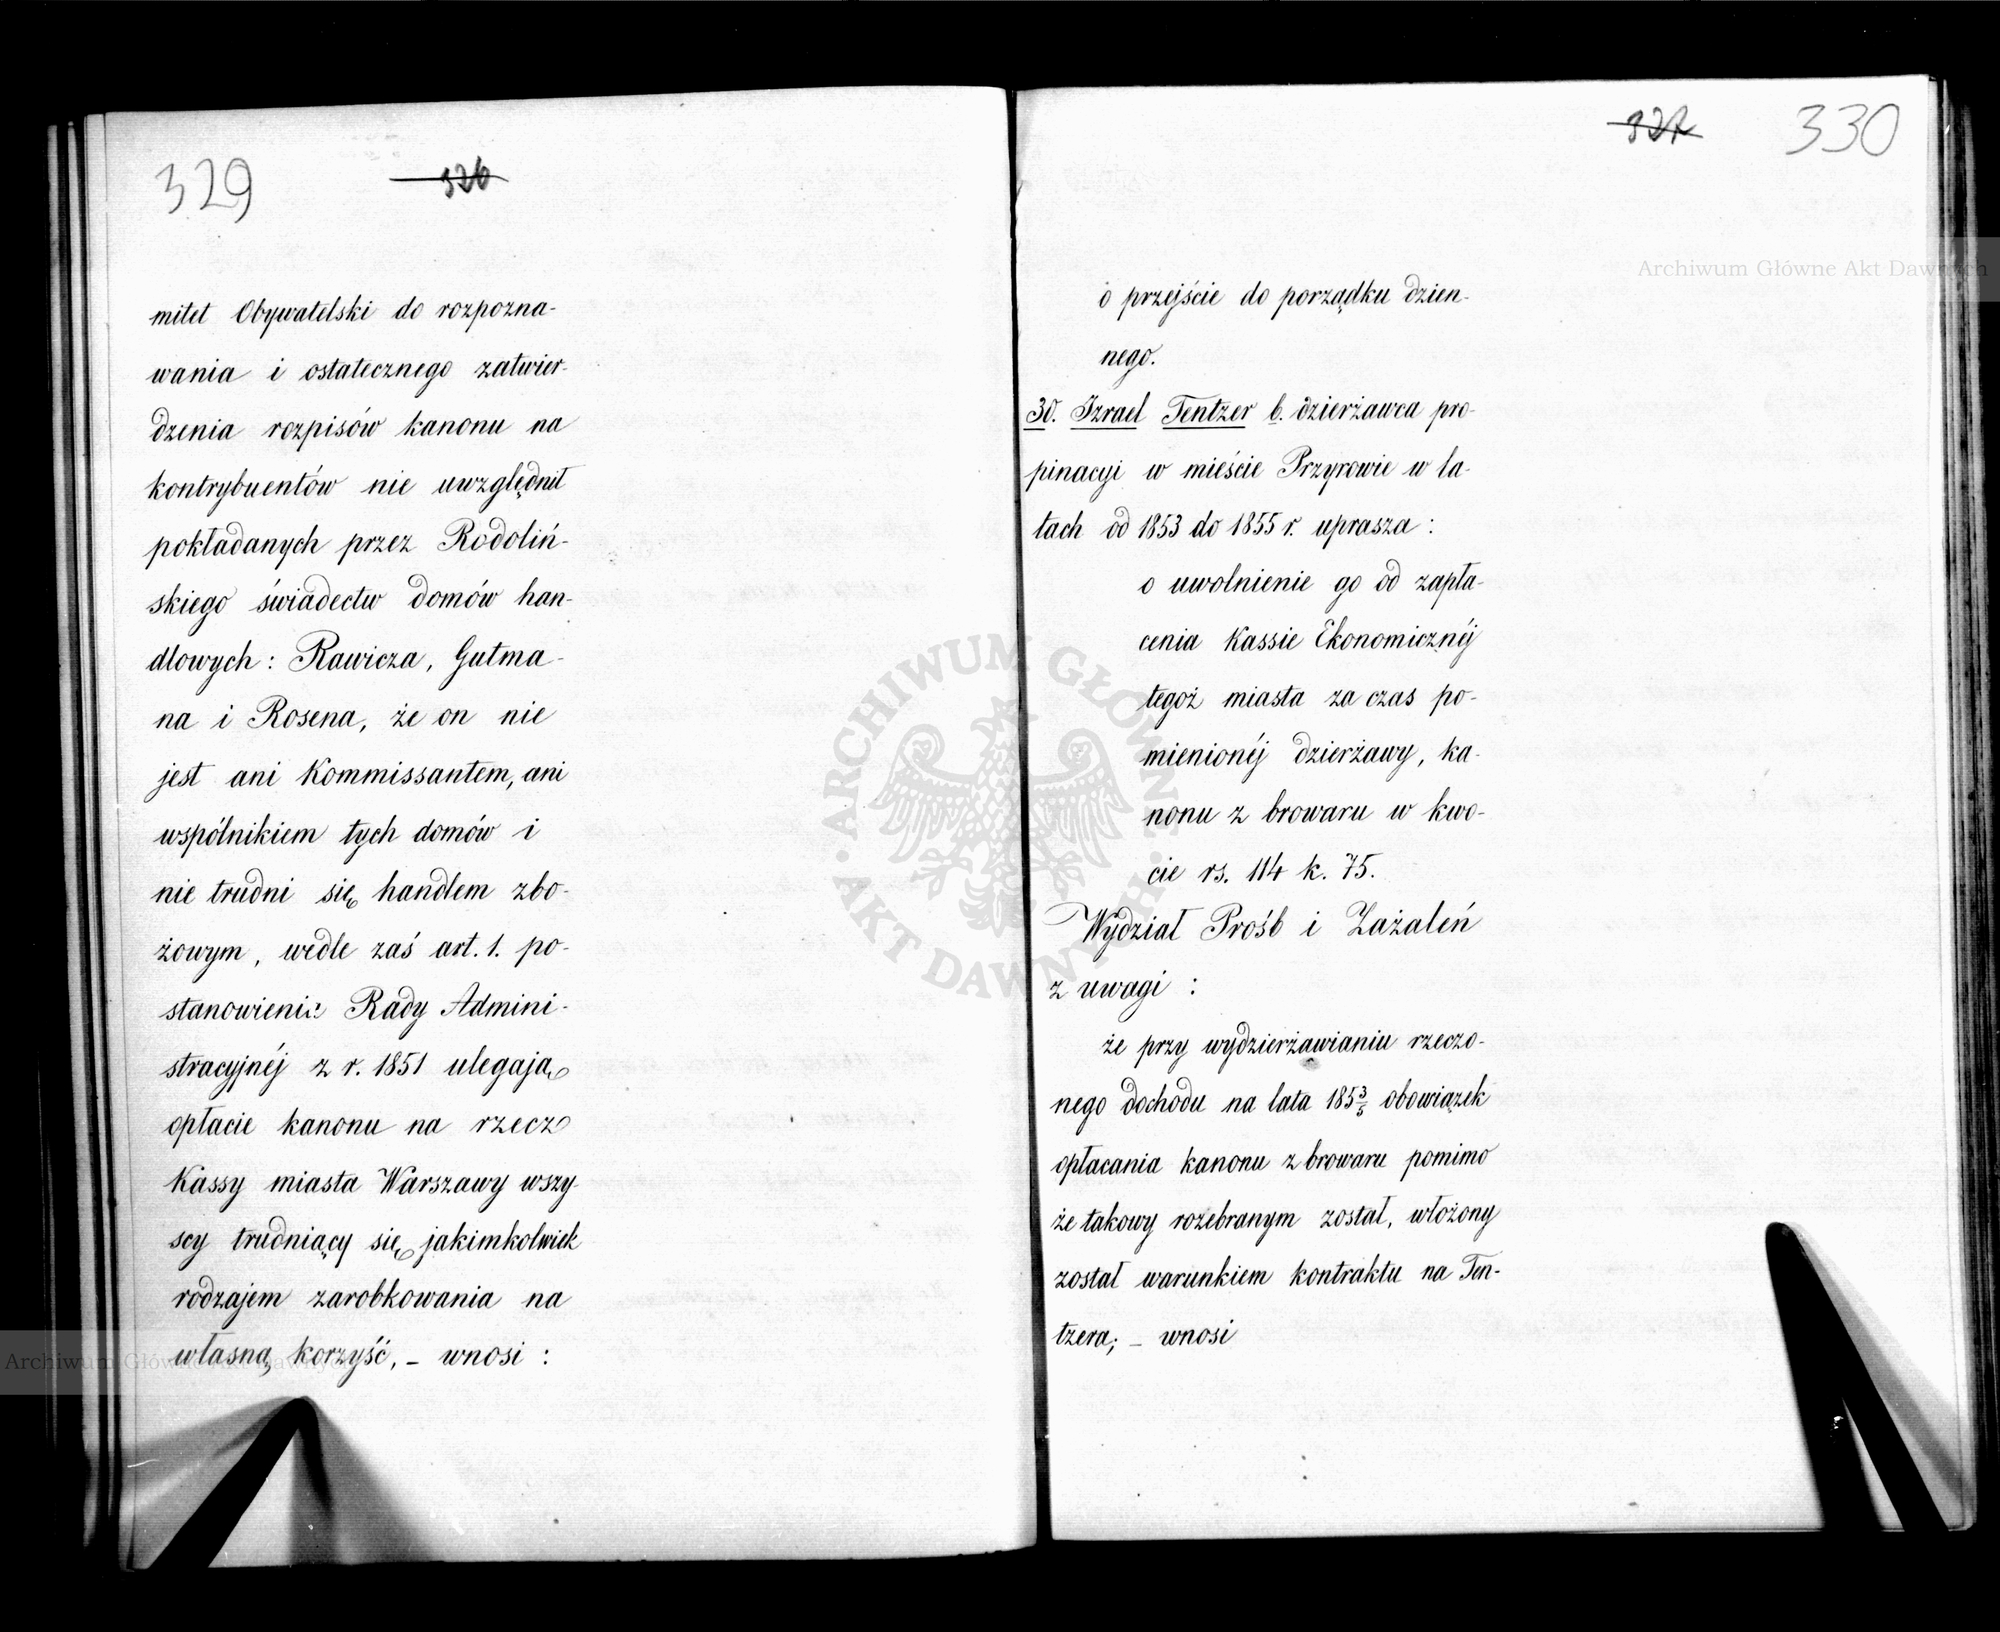 329
326
mitet Obywatelski do rozpozna-
wania i ostatecznego zatwier-
dzenia rozpisów kanonu na
kontrybuentów nie uwzględnił
pokładanych przez Rodoliń-
skiego świadectw domów han-
dlowych: Rawicza, Gutma-
na i Rosena, że on nie
jest ani Kommissantem, ani
wspólnikiem tych domów i
nie trudni się handlem zbo-
żowym, wedle zaś art. 1. po-
stanowienia Rady Admini-
stracyjnéj z r. 1851 ulegają
opłacie kanonu na rzecz
Kassy miasta Warszawy wszy-
scy trudniący się jakimkolwiek
rodzajem zarobkowania na
własną korzyść, – wnosi :
327
330
o przejście do porządku dzien-
nego.
30. Izrael Tentzer b. dzierżawca pro-
pinacyi w mieście Przyrowie w la-
tach od 1853 do 1855 r. uprasza :
o uwolnienie go od zapła-
cenia Kassie Ekonomicznéj
tegoż miasta za czas po-
mienionéj dzierżawy, ka-
nonu z browaru w kwo-
cie rs. 114 k. 75.
Wydział Prośb i Zażaleń
z uwagi :
że przy wydzierżawianiu rzeczo-
nego dochodu na lata 185 3/5 obowiązek
opłacania kanonu z browaru pomimo
że takowy rozebranym został, włożony
został warunkiem kontraktu na Ten-
tzera; – wnosi
Archiwum Główne Akt Dawnych
ARCHIWUM GŁÓWNE AKT DAWNYCH
Archiwum Główne Akt Dawnych